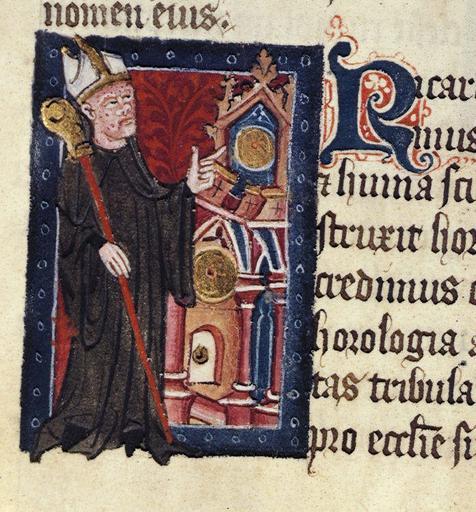 nomen eius.
Ricar
mus
⁊ huma sci
struxit hor
credimus o
horologia a
tas tribula
pro ecclie si